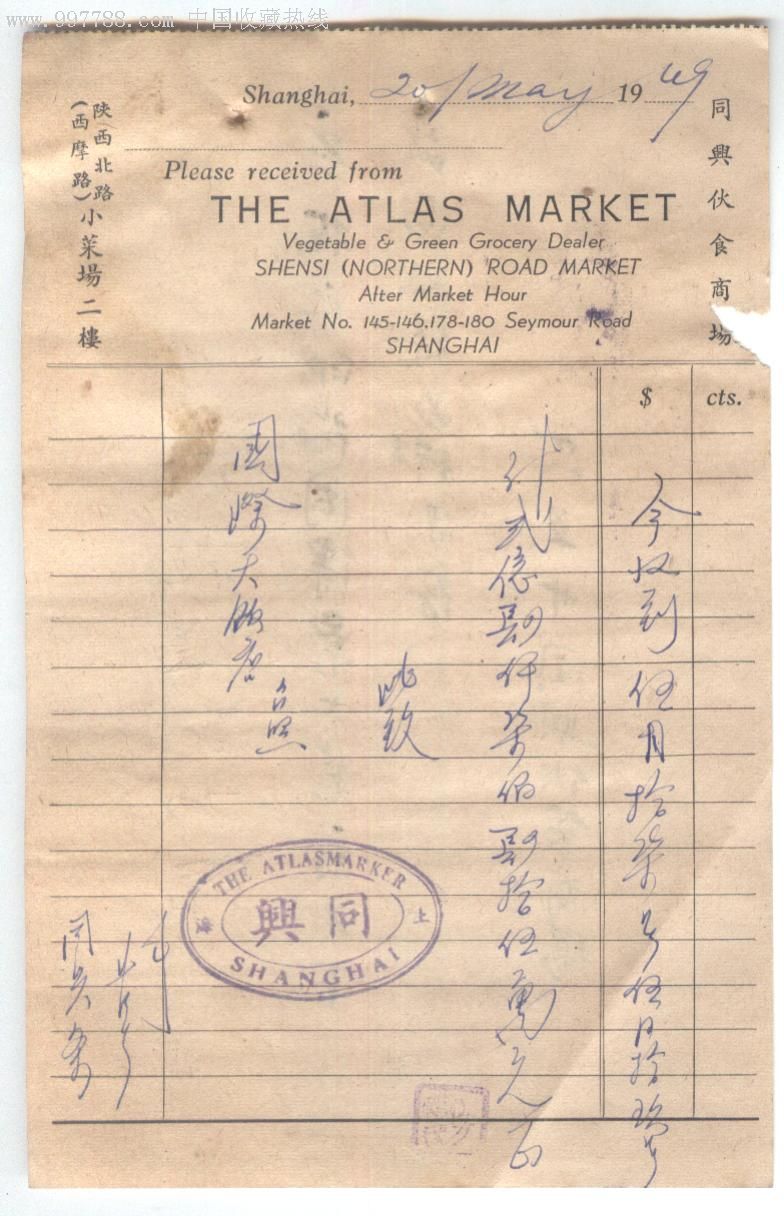 www.997788.com 中国收藏热线
Shanghai, 20/May 1949
Please received from
THE ATLAS MARKET
Vegetable & Green Grocery Dealer
SHENSI (NORTHERN) ROAD MARKET
After Market Hour
Market No. 145-146.178-180 Seymour Road
SHANGHAI
同興伙食商場
陝西北路
(西摩路)
小菜場二樓
$ cts.
今收到伍月拾柒号伍月拾玖号
仟柒佰 拾伍萬元
此致
國際大飯店
台照
THE ATLASMARKER
同興
上海
SHANGHAI